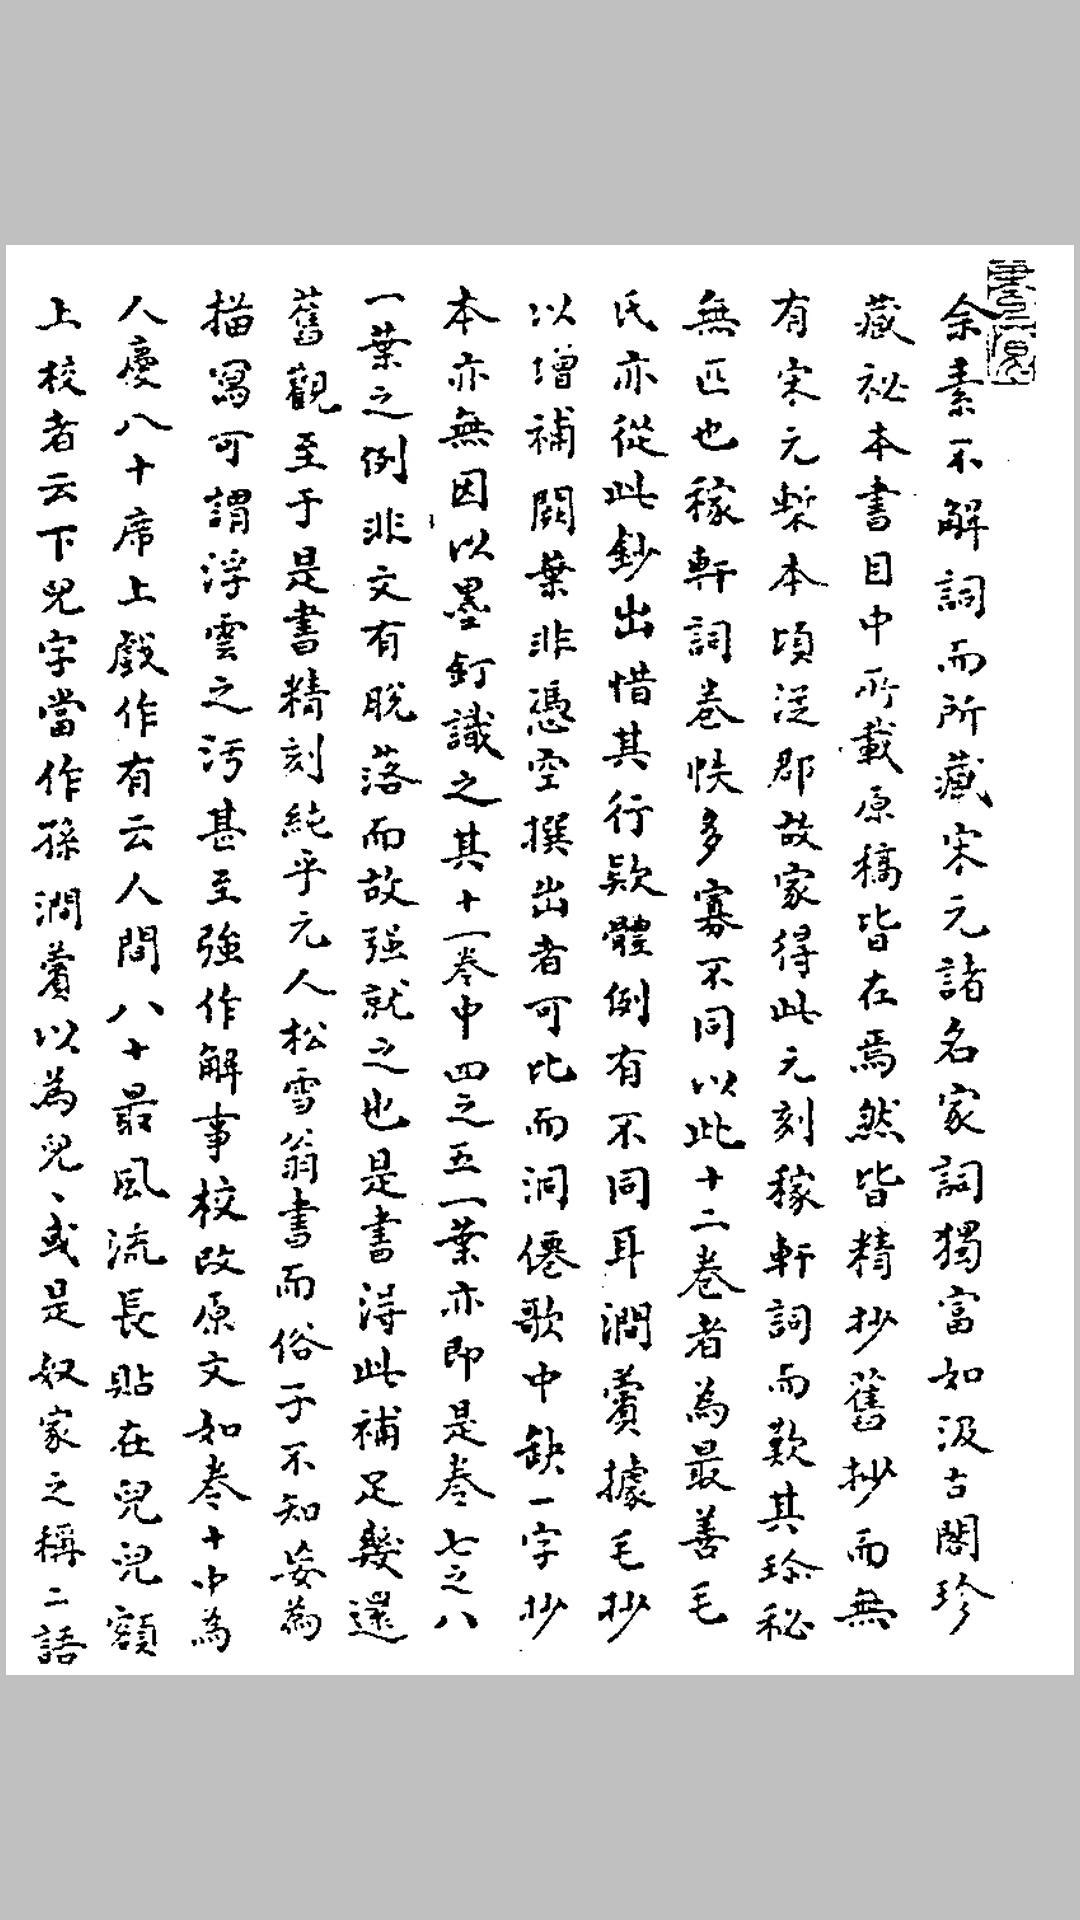 余素不解詞而所藏宋元諸名家詞獨富如汲古閣珍
藏祕本書目中所載原稿皆在焉然皆精抄舊抄而無
有宋元槧本頃從郡故家得此元刻稼軒詞而歎其珍秘
無匹也稼軒詞卷帙多寡不同以此十二卷者為最善毛
氏亦從此鈔出惜其行款體例有不同耳澗薲據毛抄
以增補闕葉非憑空撰出者可比而洞僊歌中缺一字抄
本亦無因以墨釘識之其十一卷中四之五一葉亦即是卷七之八
一葉之例非文有脫落而故强就之也是書得此補足幾還
舊觀至于是書精刻純乎元人松雪翁書而俗子不知妄為
描寫可謂浮雲之污甚至強作解事校改原文如卷十中為
人慶八十席上戲作有云人間八十最風流長貼在兒兒額
上校者云下兒字當作孫澗薲以為兒丶或是奴家之稱二語